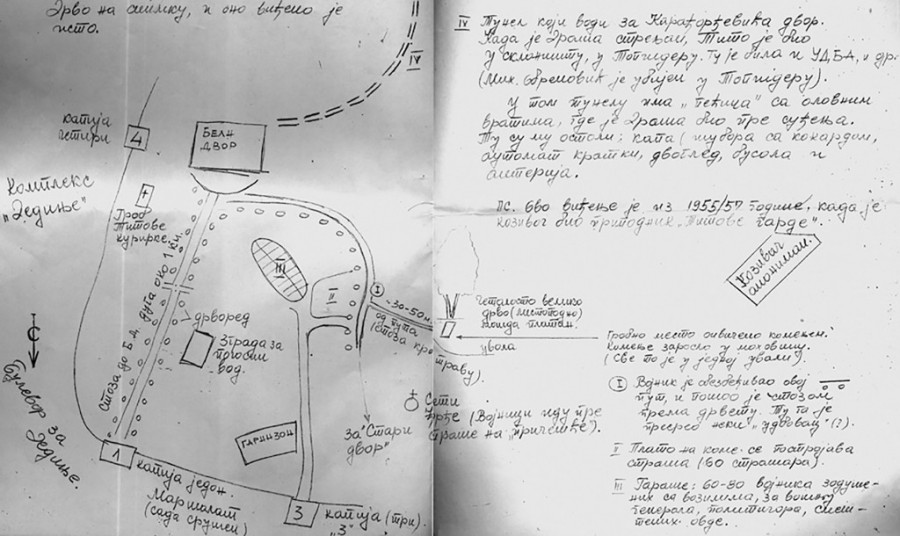 Дрво на снимку, и оно виђено је
исто.
IV
капија
четири
4
БЕЛИ
ДВОР
Комплекс
„Дедиње"
Гроб
Титове
курирке.
Стаза до Б.д. дуга око 1 км.
III
II
I
~30-50м.
од пута
(стаза кроз
траву).
дрворед
Зграда за
противп.
вод.
С
Булевар за
Дедиње.
ГАРНИЗОН
за "Стари
двор"
1
капија један.
Маршалат
(сада срушен)
3
капија (три).
"3"
IV Тунел који води за Карађорђевића двор.
Када је Дража стрељан, Тито је био
у склоништу, у Топчидеру. Ту је била и УДБА, и др.
(Мих. Обреновић је убијен у Топчидеру).
У том тунелу има „ћелија" са оловним
вратима, где је Дража био пре суђења.
Ту су му остали: капа (шубара са кокардом,
аутомат кратки, двоглед, бусола и
ПС. Ово виђење је из 1955/57 године, када је
казивач био припадник „Титове гарде".
Казивач
анониман.
дрво (листопадно)
можда платан.
увала
Гробно место оивичено каменом.
Камење зарасло у маховину.
(Све то је у једној ували).
Сети
(Војници иду пре
страже на „причешће").
I Војник је обезбеђивао овај
пут, и пошао је стазом
према дрвету. Ту га је
пресрео неки „удбовац" (?).
II Плато на коме се постројава
стража (60 стражара).
III Гараже: 60-80 војника задуже-
них са возилима, за вожњу
генерала, политичара, смеш-
тених овде.